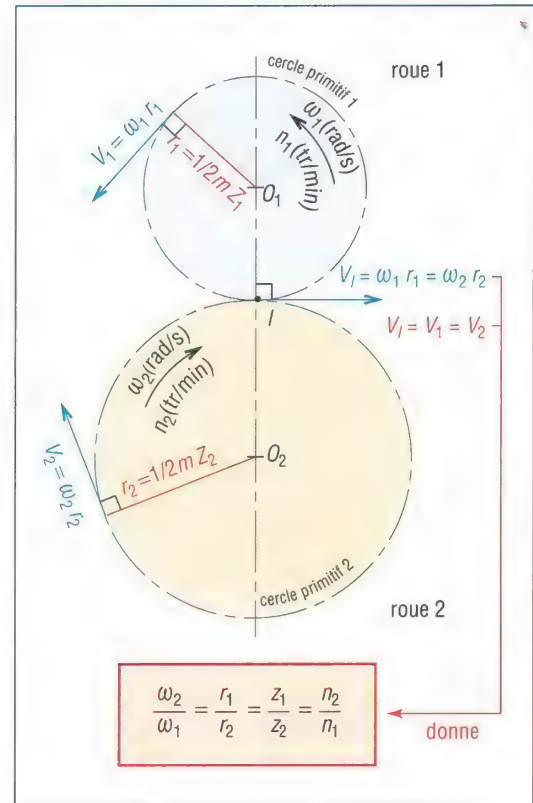 cercle primitif 1
roue 1
ω₁(rad/s)
n₁(tr/min)
V₁ = ω₁ r₁
r₁ = 1/2 m Z₁
O₁
V_I = ω₁ r₁ = ω₂ r₂
I
V_I = V₁ = V₂
ω₂(rad/s)
n₂(tr/min)
O₂
r₂ = 1/2 m Z₂
V₂ = ω₂ r₂
cercle primitif 2
roue 2
ω₂/ω₁ = r₁/r₂ = z₁/z₂ = n₂/n₁
donne